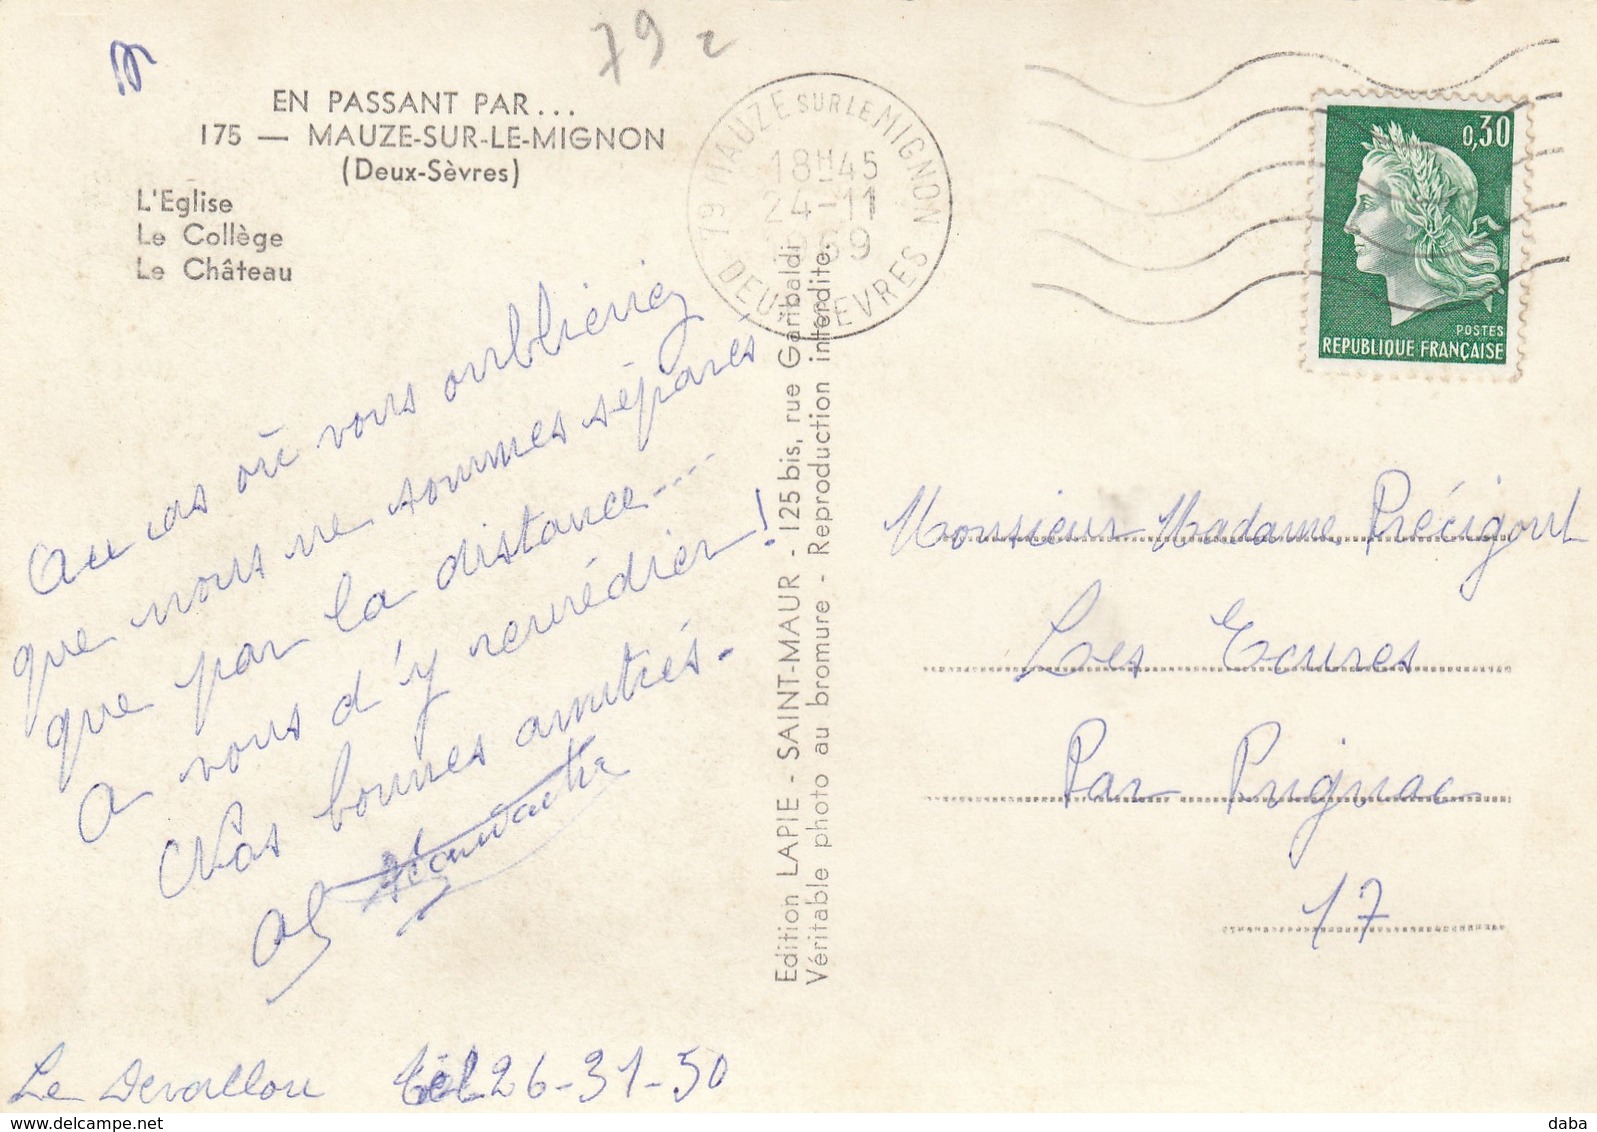 79 2
EN PASSANT PAR...
175 — MAUZE-SUR-LE-MIGNON
(Deux-Sèvres)
L'Eglise
Le Collège
Le Château
79 MAUZE SUR LE MIGNON
18H45
24-11
1969
DEUX SEVRES
0,30
POSTES
REPUBLIQUE FRANÇAISE
Au cas où vous oublieriez
que nous ne sommes séparés
que par la distance....
A vous d'y remédier!
Nos bonnes amitiés.
Le Devallou Tél 26-31-50
Edition LAPIE - SAINT-MAUR - 125 bis, rue Garibaldi
Véritable photo au bromure - Reproduction interdite.
Monsieur Madame Précigout
Les Ecures
Par Prignac
17
daba
www.delcampe.net